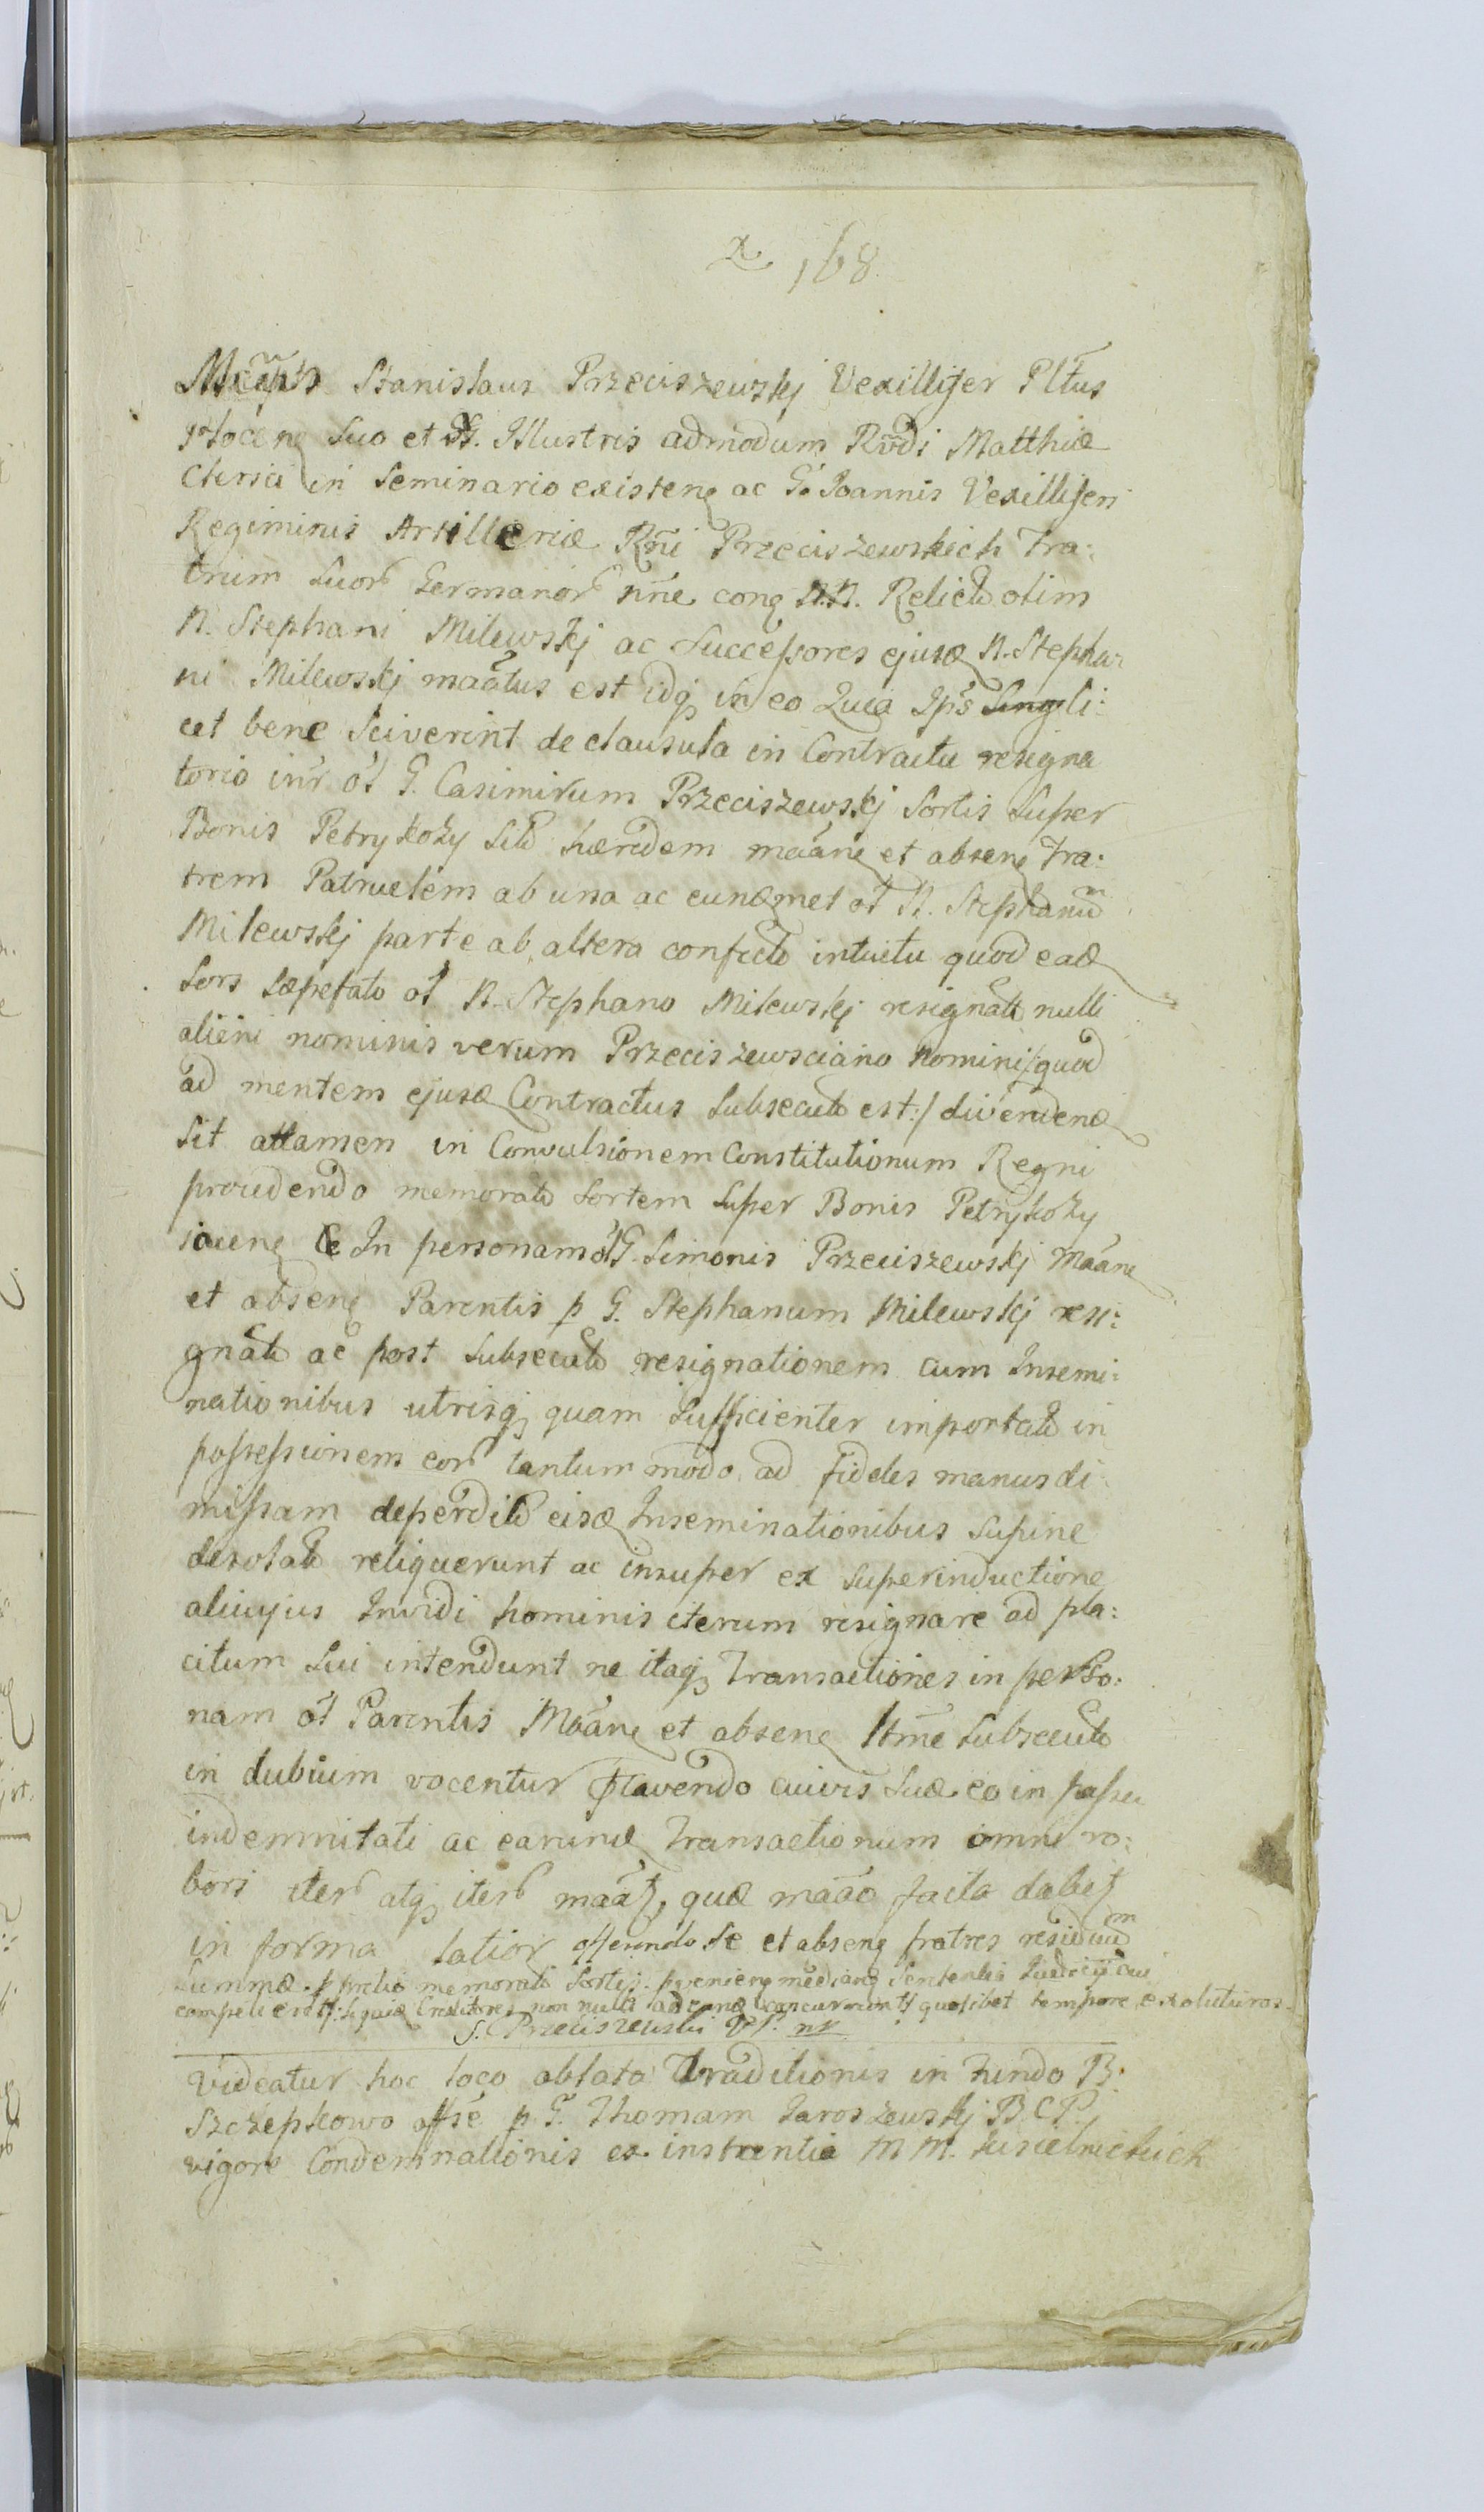 168
Stanislaus Przeciszewskj Vexillifer Pltus
suo et G. Illustris admodum Rndi Matthiæ
Clerici in Seminario existenꝫ ac G. Joannis Vexilliferi
Regiminis Artilleriæ Rni Przeciszewskich Fra:
trum suor Germanor nñe conꝫ N.N. Relictã olim
N. Stephani Milewskj ac Successores ejusꝫ N. Stepha
ni Milewskj maãtus est idqꝫ in eo Quia Ips li:
cet bene Sciverint de clausula in Contractu resigna
torio intr ol G. Casimirum Przeciszewskj Sortis Super
Bonis Petrykozy hæredem maãnꝫ et absenꝫ Fra:
trem Patruelem ab una ac eunꝫmet ol N. Stephanum
Milewskj parte ab altera confecto intuitu quod eaꝫ
Sors sæpefato ol N. Stephano Milewskj resignata nulli
alieni nominis verum Przeciszewsciano Nomini /:quod
ad mentem ejusꝫ Contractus Subsecutũ est:/ divendenꝫ
Sit attamen in Convulsionem Constitutionum Regni
providendo memoratã Sortem Super Bonis Petrykozy
jacenꝫ In personam ol G. Simonis Przeciszewskj Maãnꝫ
et absenꝫ Parentis p G. Stephanum Milewskj resi:
gnatã ac post Subsecutã resignationem cum Insemi:
nationibus utrisqꝫ quam Sufficienter importatã in
possessionem eor tantummodo ad fideles manus di
missam deperditis eisꝫ Inseminationibus supine
desolatã reliquerunt ac insuper ex Superinductione
alicujus Invidi hominis iterum resignare ad pla:
citum Sui intendunt ne itaqꝫ Transactiones in perso:
nam ol Parentis Maãnꝫ et absenꝫ Subsecutã
in dubium vocentur cavendo cuivis Suæ eo in passu
indemnitati ac earunꝫ Transactionum omni ro:
bori iter atqꝫ iter maãt, quæ maão facta dabet
in forma latiori offerendo Se et absenꝫ fratres residuum
Summæ p pretio memoratã Sortis provenienꝫ medianꝫ Sententia Judicij cui
competierit /:Siquiꝫ Creditores non nulli ad eanꝫ concurrerint:/ quolibet tempore exoluturos
S. Przeciszewski
Videatur hoc loco oblata Traditionis in Fundo B.
Szczepkowo p G. Thomam Jaroszewskj B.C.P.
vigore Condemnationis ex instantia M.M.